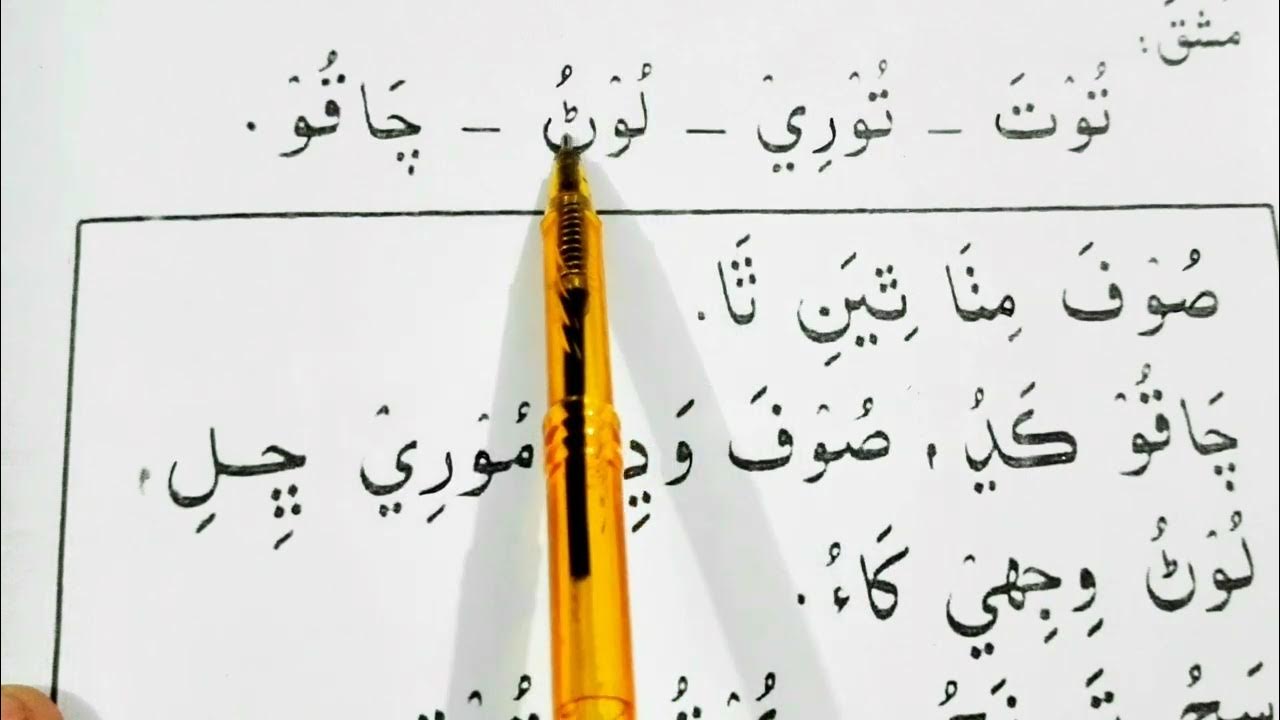 مَشقَ:
تُوْتَ – تُوْرِيْ – لُوْڻُ – چَاقُوْ.
صُوْفَ مِٺَا ٿِيَنِ ٿَا.
چَاقُوْ ڪَڍُ، صُوْفَ وَڍِ مُوْرِيْ ڇِلِ،
لُوْڻُ وِجِهيْ کَاءُ.